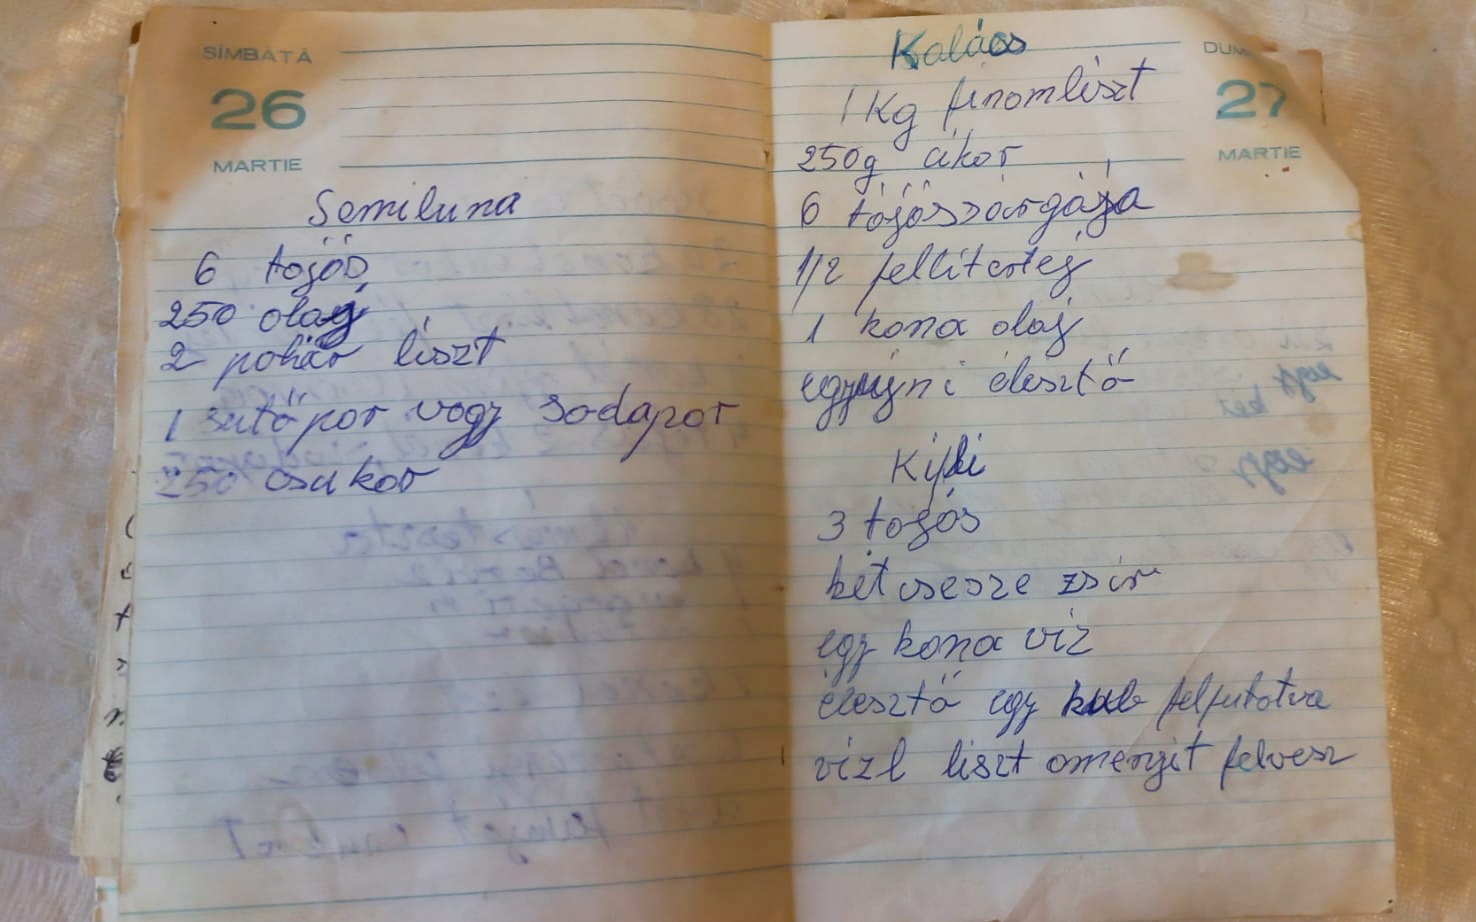 SÎMBĂTĂ
26
MARTIE
Semiluna
6 tojás
250 olaj
2 pohár liszt
1 sütőpor vagy sodapor
250 csukor
Kalács
DUM
27
MARTIE
1 Kg finomliszt
250g cukor
6 tojássárgája
1/2 félliter tej
1 kana olaj
egy élesztő
Kifli
3 tojás
két csesze zsír
egy kana víz
élesztő egy kub felfutatva
vízl liszt amenyit felvesz